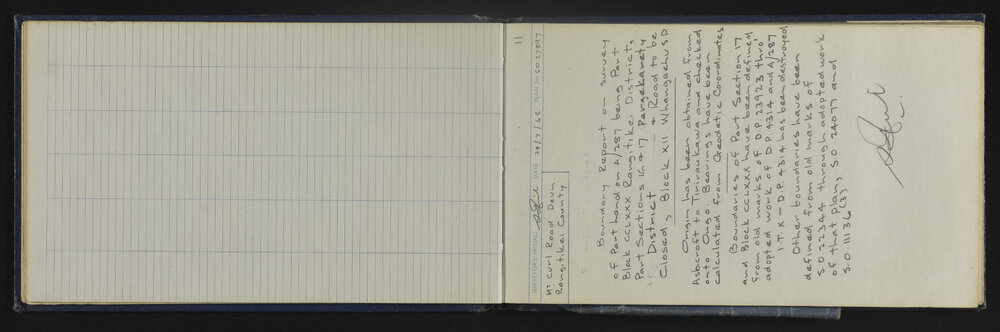 11
SURVEYOR'S INITIALS DATE 24/7/68 PLAN No. SO 27597
Mt Curl Road Devn
Rangitikei County
Boundary Report on survey
of Part hand on A/287 being Part
Block CCLXXX Rangitikei District,
Part Sections 16 & 17 Pargekaretu
District - & Road to be
Closed, Block XII Whangaehu SD
Origin has been obtained from
Ashcroft to Tiriraukawa and checked
onto Ongo. Bearings have been
calculated from Geodetic Coordinates
Boundaries of Part Section 17
and Block CCLXXX have been defined
from old marks of D.P. 23923 thro'
adopted work of D.P. 4314 and A/287
I.T. X - D.P. 4314 has been destroyed
Other boundaries have been
defined from old marks of
SO 22344 through adopted work
of that plan, SO 24077 and
S.O. 11136 (3).